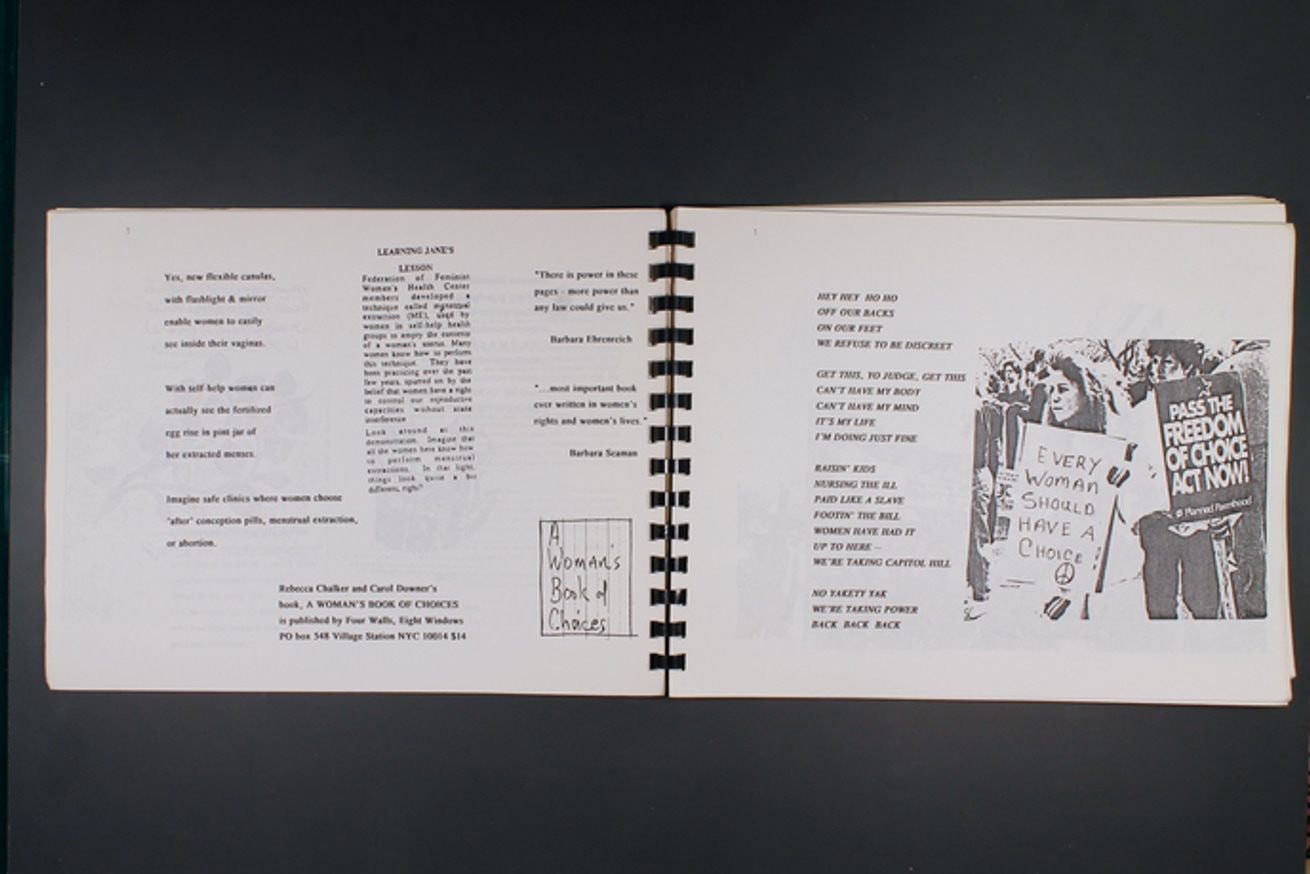 Yes, new flexible canulas,
with flashlight & mirror
enable women to easily
see inside their vaginas.
With self help women can
actually see the fertilized
egg rise in pint jar of
her extracted menses.
Imagine safe clinics where women choose
'after' conception pills, menstrual extraction,
or abortion.
LEARNING JANE'S
LESSON
Federation of Feminist
Women's Health Center
members developed a
technique called menstrual
extraction (ME), used by
women in self-help health
groups to empty the contents
of a woman's uterus. Many
women know how to perform
this technique. They have
been practicing over the past
few years, spurred on by the
belief that women have a right
to control our reproductive
capacities without state
interference
Look around at this
demonstration. Imagine that
all the women here know how
to perform menstrual
extractions. In that light,
things look quite a bit
different, right?
"There is power in these
pages - more power than
any law could give us."
Barbara Ehrenreich
"...most important book
ever written in women's
rights and women's lives."
Barbara Seaman
Rebecca Chalker and Carol Downer's
book, A WOMAN'S BOOK OF CHOICES
is published by Four Walls, Eight Windows
PO box 548 Village Station NYC 10014 $14
A
Woman's
Book of
Choices
HEY HEY HO HO
OFF OUR BACKS
ON OUR FEET
WE REFUSE TO BE DISCREET
GET THIS, YO JUDGE, GET THIS
CAN'T HAVE MY BODY
CAN'T HAVE MY MIND
IT'S MY LIFE
I'M DOING JUST FINE
RAISIN' KIDS
NURSING THE ILL
PAID LIKE A SLAVE
FOOTIN' THE BILL
WOMEN HAVE HAD IT
UP TO HERE --
WE'RE TAKING CAPITOL HILL
NO YAKETY YAK
WE'RE TAKING POWER
BACK BACK BACK
EVERY
WOMAN
SHOULD
HAVE A
CHOICE
PASS THE
FREEDOM
OF CHOICE
ACT NOW!
Planned Parenthood